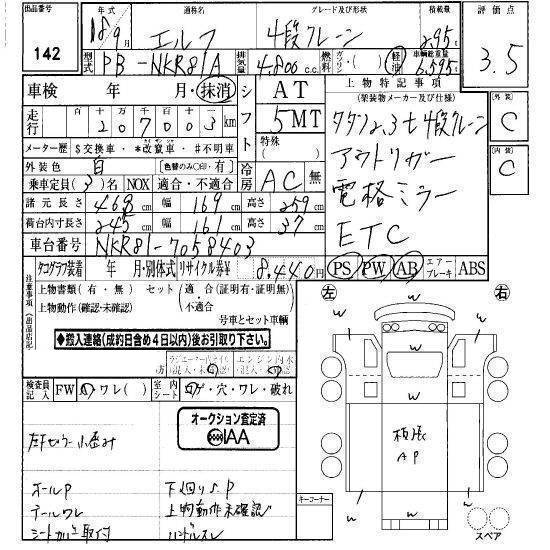 出品番号 142
年式 18年9月 通称名 エルフ グレード及び形状 4段クレーン 積載量 2.95t 評価点 3.5
型式 PB-NKR81A 排気量 4.800c.c. 燃料 ガソリン・( )・軽油 車輌総重量 6.595t
車検 年 月・抹消 シフト AT 上物特記事項
(架装物メーカー及び仕様)
走行 十 万 千 百 十 一
207003km 5MT
外装 C
内装 C
タダノ2.3t 4段クレーン
メーター歴 $交換車・*改竄車・#不明車 特殊( )
アウトリガー
外装色 白 [色替のみ○印・有] 冷房 AC 無
電格ミラー
乗車定員(3)名 NOX 適合・不適合
ETC
諸元長さ 468cm 幅 169cm 高さ 259cm
荷台内寸長さ 245cm 幅 161cm 高さ 37cm
車台番号 NKR81-7058403
PS PW AB エアーブレーキ ABS
注意事項(出品店記)
タコグラフ装着 年 月・別体式 リサイクル券¥ 8.440円
上物書類(有・無) セット(適合(証明有・証明無)・不適合)
上物動作(確認・未確認) 号車とセット車輌
◆搬入連絡(成約日含め4日以内)後お引取り下さい。◆
左 右
検査員記入 FW ワレ( ) 室内シート コゲ・穴・ワレ・破れ
オークション査定済
IAA
w w w w w w w
AP
ホールP 下回りS.P
テールワレ 上物動作未確認
ハンドルスレ
キーコーナー
スペア